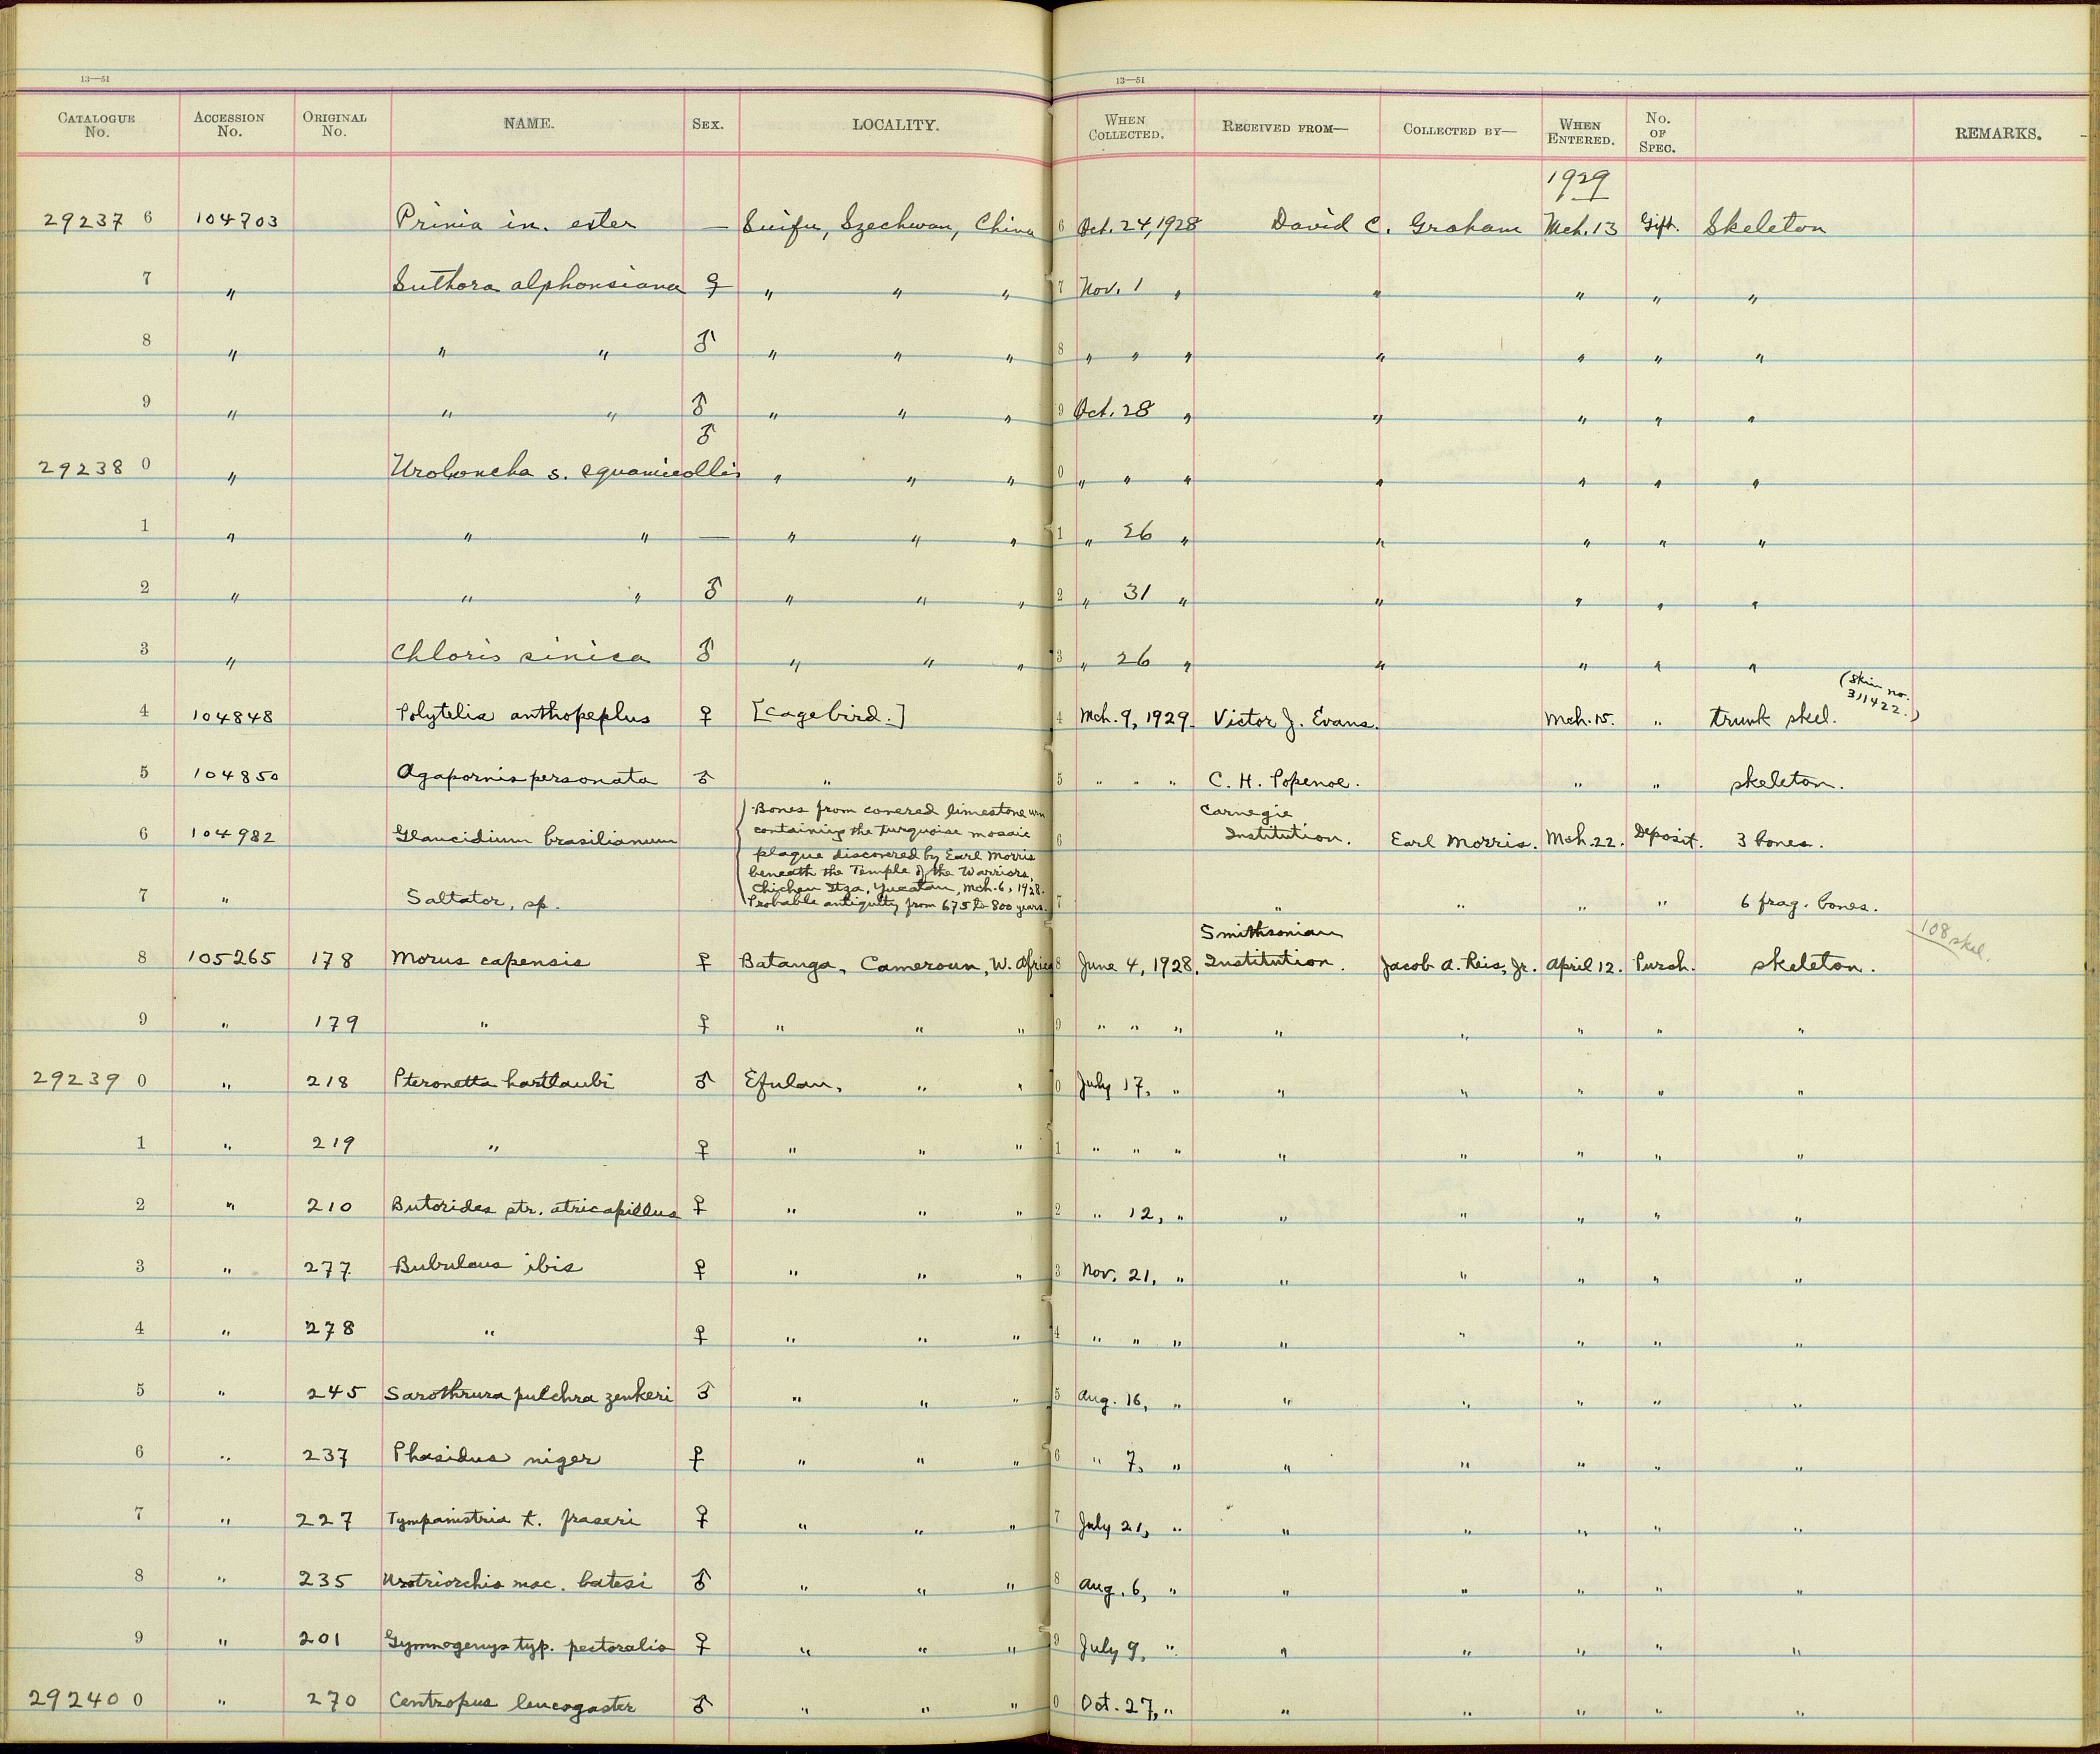 13—51
13—51
CATALOGUE No. ACCESSION No. ORIGINAL No. NAME. SEX. LOCALITY. WHEN COLLECTED. RECEIVED FROM— COLLECTED BY— WHEN ENTERED. No. OF SPEC. REMARKS.
1929
29237 6 104703 Prinia in. exter — Suifu, Szechwan, China 6 Oct. 24, 1928 David C. Graham Mch. 13 Gift. Skeleton
7 " Suthora alphonsiana ♀ " " " 7 Nov. 1 " " " " "
8 " " " ♂ " " " 8 " " " " " " "
9 " " " ♂ " " " 9 Oct. 28 " " " " "
♂
29238 0 " Uroloncha s. squamicollis " " " 0 " " " " " " "
1 " " " — " " " 1 " 26 " " " " "
2 " " " ♂ " " " 2 " 31 " " " " "
3 " Chloris sinica ♂ " " " 3 " 26 " " " " "
(Skin no. 311422.)
4 104848 Polytelis anthopeplus ♀ [cagebird.] 4 Mch. 9, 1929. Victor J. Evans. Mch. 15. " trunk skel.
5 104850 Agapornis personata ♂ " 5 " " " C. H. Popenoe. " " skeleton.
Bones from covered limestone urn
containing the turquoise mosaic
plaque discovered by Earl Morris
beneath the Temple of the Warriors,
Chichen Itza, Yucatan, Mch. 6, 1928.
Probable antiquity from 675 to 800 years.
6 104982 Glaucidium brasilianum 6 Carnegie Institution. Earl Morris. Mch. 22. Deposit. 3 bones.
7 " Saltator, sp. 7 " " " " 6 frag. bones.
108 skel.
8 105265 178 Morus capensis ♀ Batanga, Cameroun, W. Africa 8 June 4, 1928. Smithsonian Institution. Jacob A. Reis, Jr. April 12. Purch. skeleton.
9 " 179 " ♀ " " " 9 " " " " " " " "
29239 0 " 218 Pteronetta hartlaubi ♂ Efulan, " " 0 July 17, " " " " " "
1 " 219 " ♀ " " " 1 " " " " " " " "
2 " 210 Butorides str. atricapillus ♀ " " " 2 " 12, " " " " " "
3 " 277 Bubulcus ibis ♀ " " " 3 Nov. 21, " " " " " "
4 " 278 " ♀ " " " 4 " " " " " " " "
5 " 245 Sarothrura pulchra zenkeri ♂ " " " 5 Aug. 16, " " " " " "
6 " 237 Phasidus niger ♀ " " " 6 " 7, " " " " " "
7 " 227 Tympanistria t. fraseri ♀ " " " 7 July 21, " " " " " "
8 " 235 Urotriorchis mac. batesi ♂ " " " 8 Aug. 6, " " " " " "
9 " 201 Gymnogenys typ. pectoralis ♀ " " " 9 July 9, " " " " " "
29240 0 " 270 Centropus leucogaster ♂ " " " 0 Oct. 27, " " " " " "